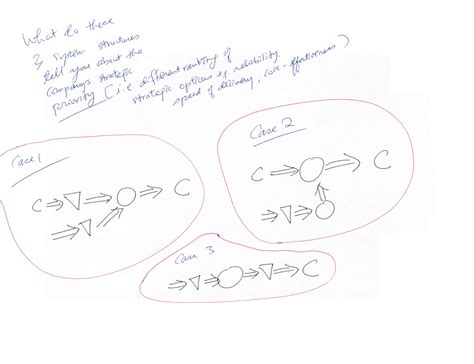 What do these
3 system structures
tell you about the
company's strategic
priority (i.e. different ranking of
strategic options eg reliability,
speed of delivery, cost-effectiveness)
Case 1
C
C
Case 2
C
C
Case 3
C